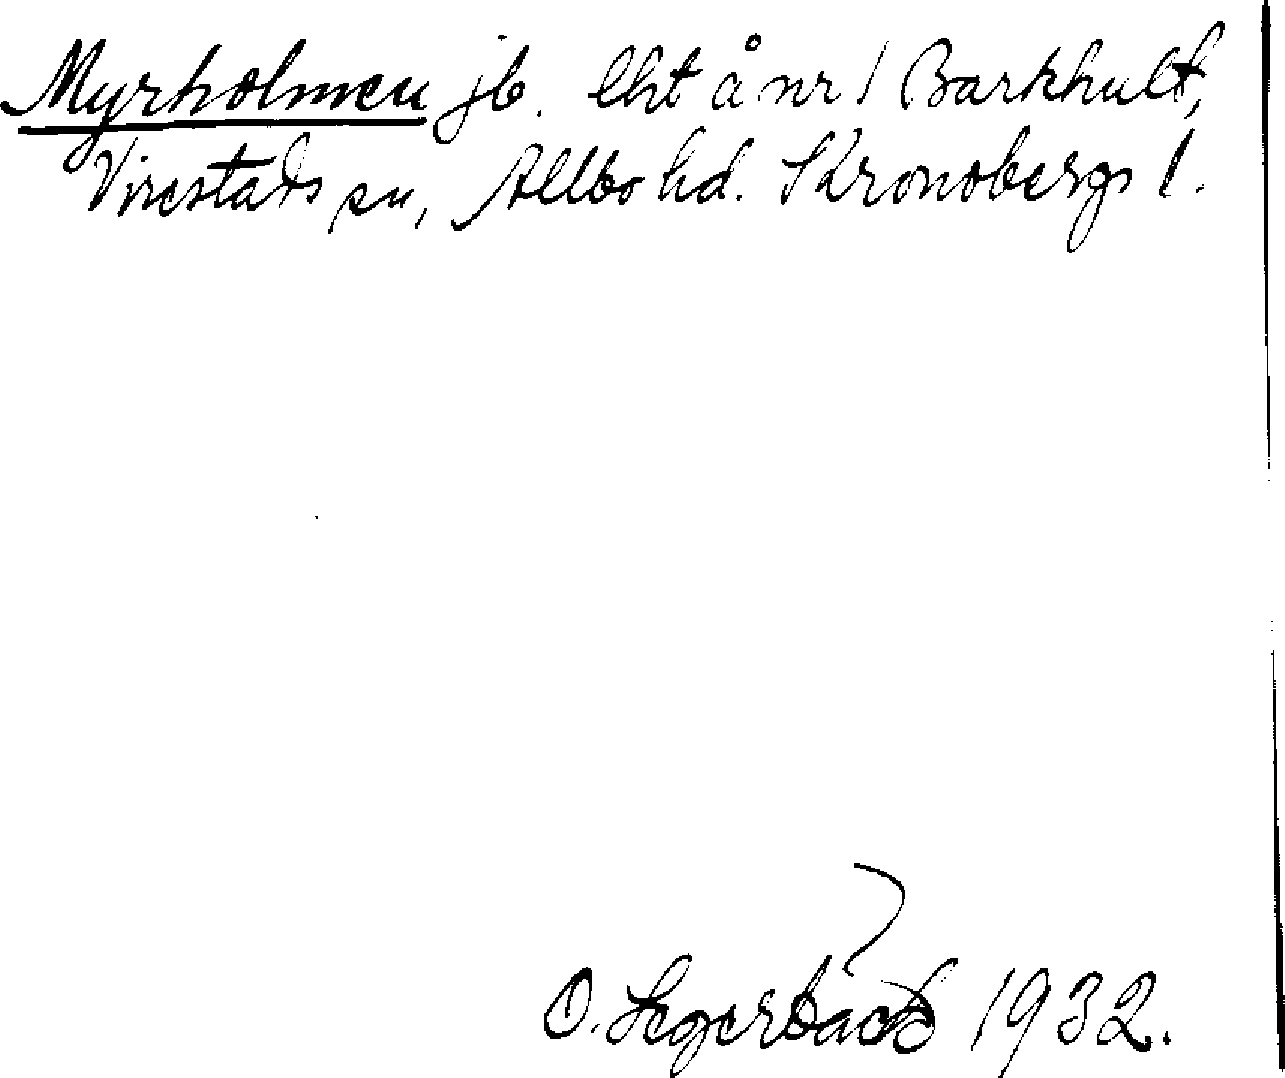 Myrholmen jb. lht å nr 1 Barkhult,
Virestads sn, Allbo hd. Kronobergs l.
O. Segerbäck 1932.